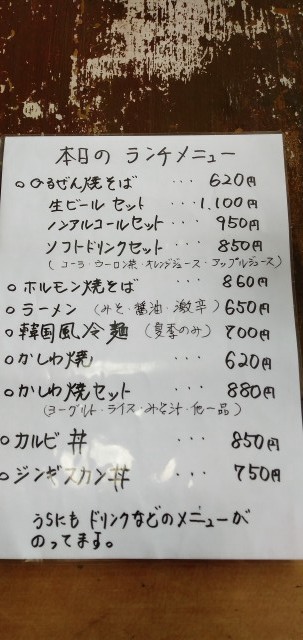 本日の ランチメニュー
○ひるぜん焼そば ・・・ 620円
生ビール セット ・・・ 1,100円
ノンアルコールセット ・・・ 950円
ソフトドリンクセット ・・・ 850円
(コーラ・ウーロン茶・オレンジジュース・アップルジュース)
○ホルモン焼そば ・・・ 860円
○ラーメン (みそ・醤油・激辛) 650円
○韓国風冷麺 (夏季のみ) 700円
○かしわ焼 ・・・ 620円
○かしわ焼セット ・・・ 880円
(ヨーグルト・ライス・みそ汁・他一品)
○カルビ丼 ・・・ 850円
○ジンギスカン丼 ・・・ 750円
うらにも ドリンクなどのメニューが
のってます。